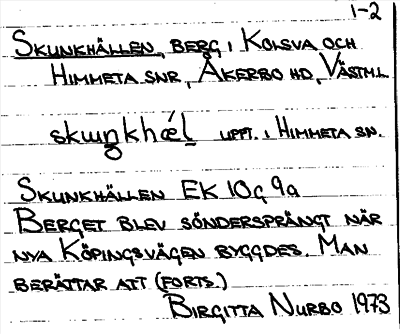 1-2
SKUNKHÄLLEN, BERG I KOLSVA OCH
HIMMETA SNR, ÅKERBO HD, VÄSTML.
skuŋkhǽl UPPT. I HIMMETA SN.
SKUNKHÄLLEN EK 10G 9a
BERGET BLEV SÖNDERSPRÄNGT NÄR
NYA KÖPINGSVÄGEN BYGGDES. MAN
BERÄTTAR ATT (FORTS.)
BIRGITTA NURBO 1973